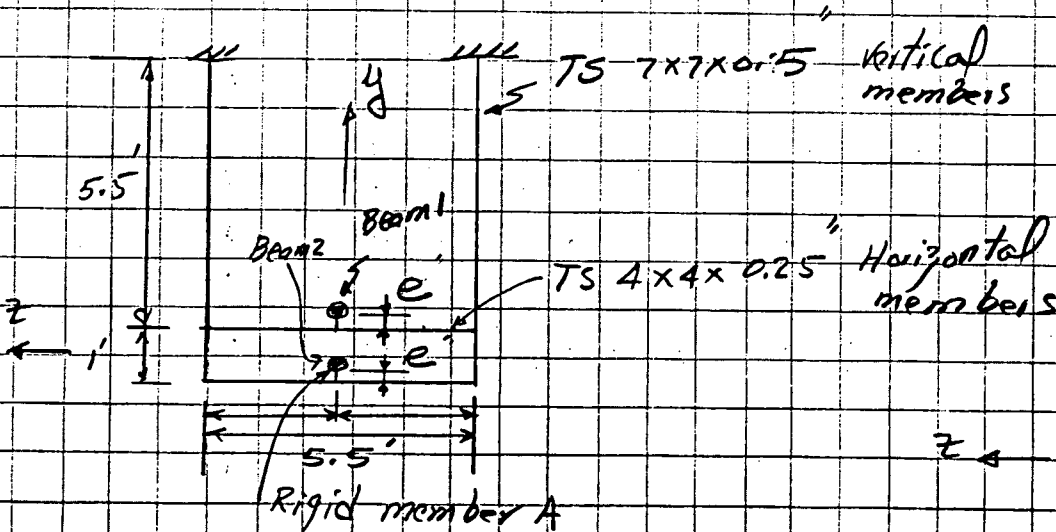 TS 7x7x0.5" vertical
members
y
5.5'
Beam1
Beam2
e'
TS 4x4x0.25" Horizontal
members
z
1'
e'
5.5'
z
Rigid member A